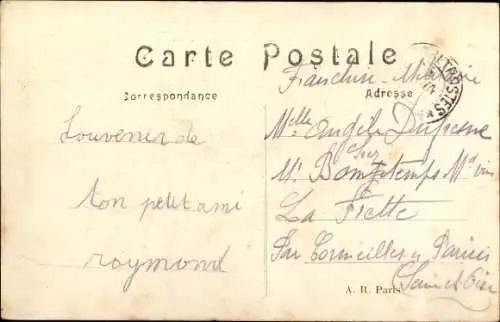 Carte Postale
Correspondance
Adresse
Souvenir de
ton petit ami
raymond
Franchise Militaire
Melle Dufresne
chez
Mr Bontemps Md vin
La Frette
Par Cormeilles en Parisis
(Seine et Oise
A. R. Paris